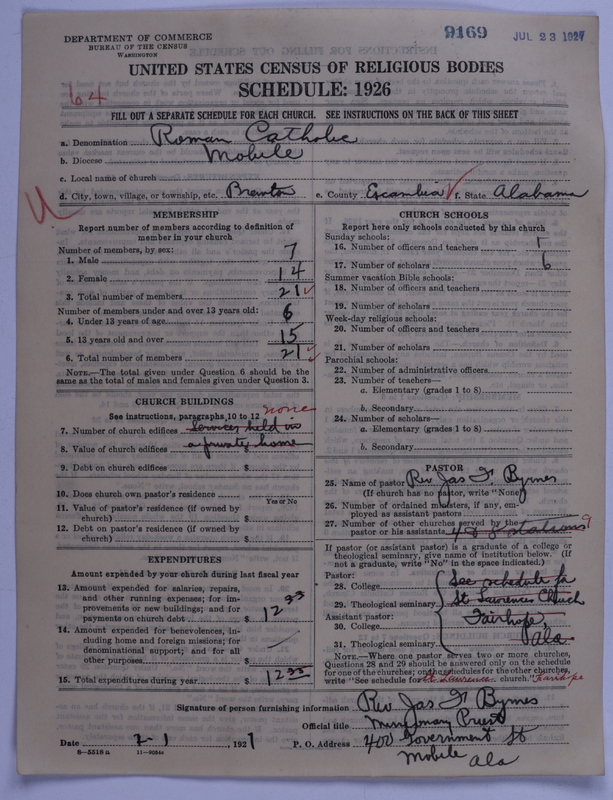 DEPARTMENT OF COMMERCE
BUREAU OF THE CENSUS
WASHINGTON
9169
JUL 23 1927
UNITED STATES CENSUS OF RELIGIOUS BODIES
SCHEDULE: 1926
64
FILL OUT A SEPARATE SCHEDULE FOR EACH CHURCH. SEE INSTRUCTIONS ON THE BACK OF THIS SHEET
a. Denomination Roman Catholic
b. Diocese Mobile
c. Local name of church
d. City, town, village, or township, etc. Brewton e. County Escambia f. State Alabama
MEMBERSHIP
Report number of members according to definition of
member in your church
Number of members, by sex:
1. Male 7
2. Female 14
3. Total number of members 21
Number of members under and over 13 years old:
4. Under 13 years of age 6
5. 13 years old and over 15
6. Total number of members 21
NOTE.—The total given under Question 6 should be
same as the total of males and females given under Question 3.
CHURCH BUILDINGS
See instructions, paragraphs 10 to 12 none
7. Number of church edifices Services held in
8. Value of church edifices a private home
9. Debt on church edifices $
10. Does church own pastor's residence
Yes or No
11. Value of pastor's residence (if owned by
church) $
12. Debt on pastor's residence (if owned by
church) $
EXPENDITURES
Amount expended by your church during last fiscal year
13. Amount expended for salaries, repairs,
and other running expenses; for im-
provements or new buildings; and for
payments on church debt $ 12 33
14. Amount expended for benevolences, in-
cluding home and foreign missions; for
denominational support; and for all
other purposes $
15. Total expenditures during year $ 12 33
CHURCH SCHOOLS
Report here only schools conducted by this church
Sunday schools:
16. Number of officers and teachers 1
17. Number of scholars 6
Summer vacation Bible schools:
18. Number of officers and teachers
19. Number of scholars
Week-day religious schools:
20. Number of officers and teachers
21. Number of scholars
Parochial schools:
22. Number of administrative officers
23. Number of teachers—
a. Elementary (grades 1 to 8)
b. Secondary
24. Number of scholars—
a. Elementary (grades 1 to 8)
b. Secondary
PASTOR
25. Name of pastor Rev Jas F. Byrnes
(If church has no pastor, write "None")
26. Number of ordained ministers, if any, em-
ployed as assistant pastors
27. Number of other churches served by the
pastor or his assistants 4 & 8 stations 9
If pastor (or assistant pastor) is a graduate of a college or
theological seminary, give name of institution below. (If
not a graduate, write "No" in the space indicated.)
Pastor:
28. College See schedule for
29. Theological seminary St Lawrence Church
Assistant pastor:
30. College Fairhope,
31. Theological seminary Ala.
NOTE.—Where one pastor serves two or more churches,
Questions 28 and 29 should be answered only on the schedule
for one of the churches; on the schedules for the other churches,
write "See schedule for St Lawrence church." Fairhope
Signature of person furnishing information Rev Jas F. Byrnes
Official title Missionary Priest
Date 2-1, 1927 P. O. Address 400 Government St
Mobile Ala
8—5518 a